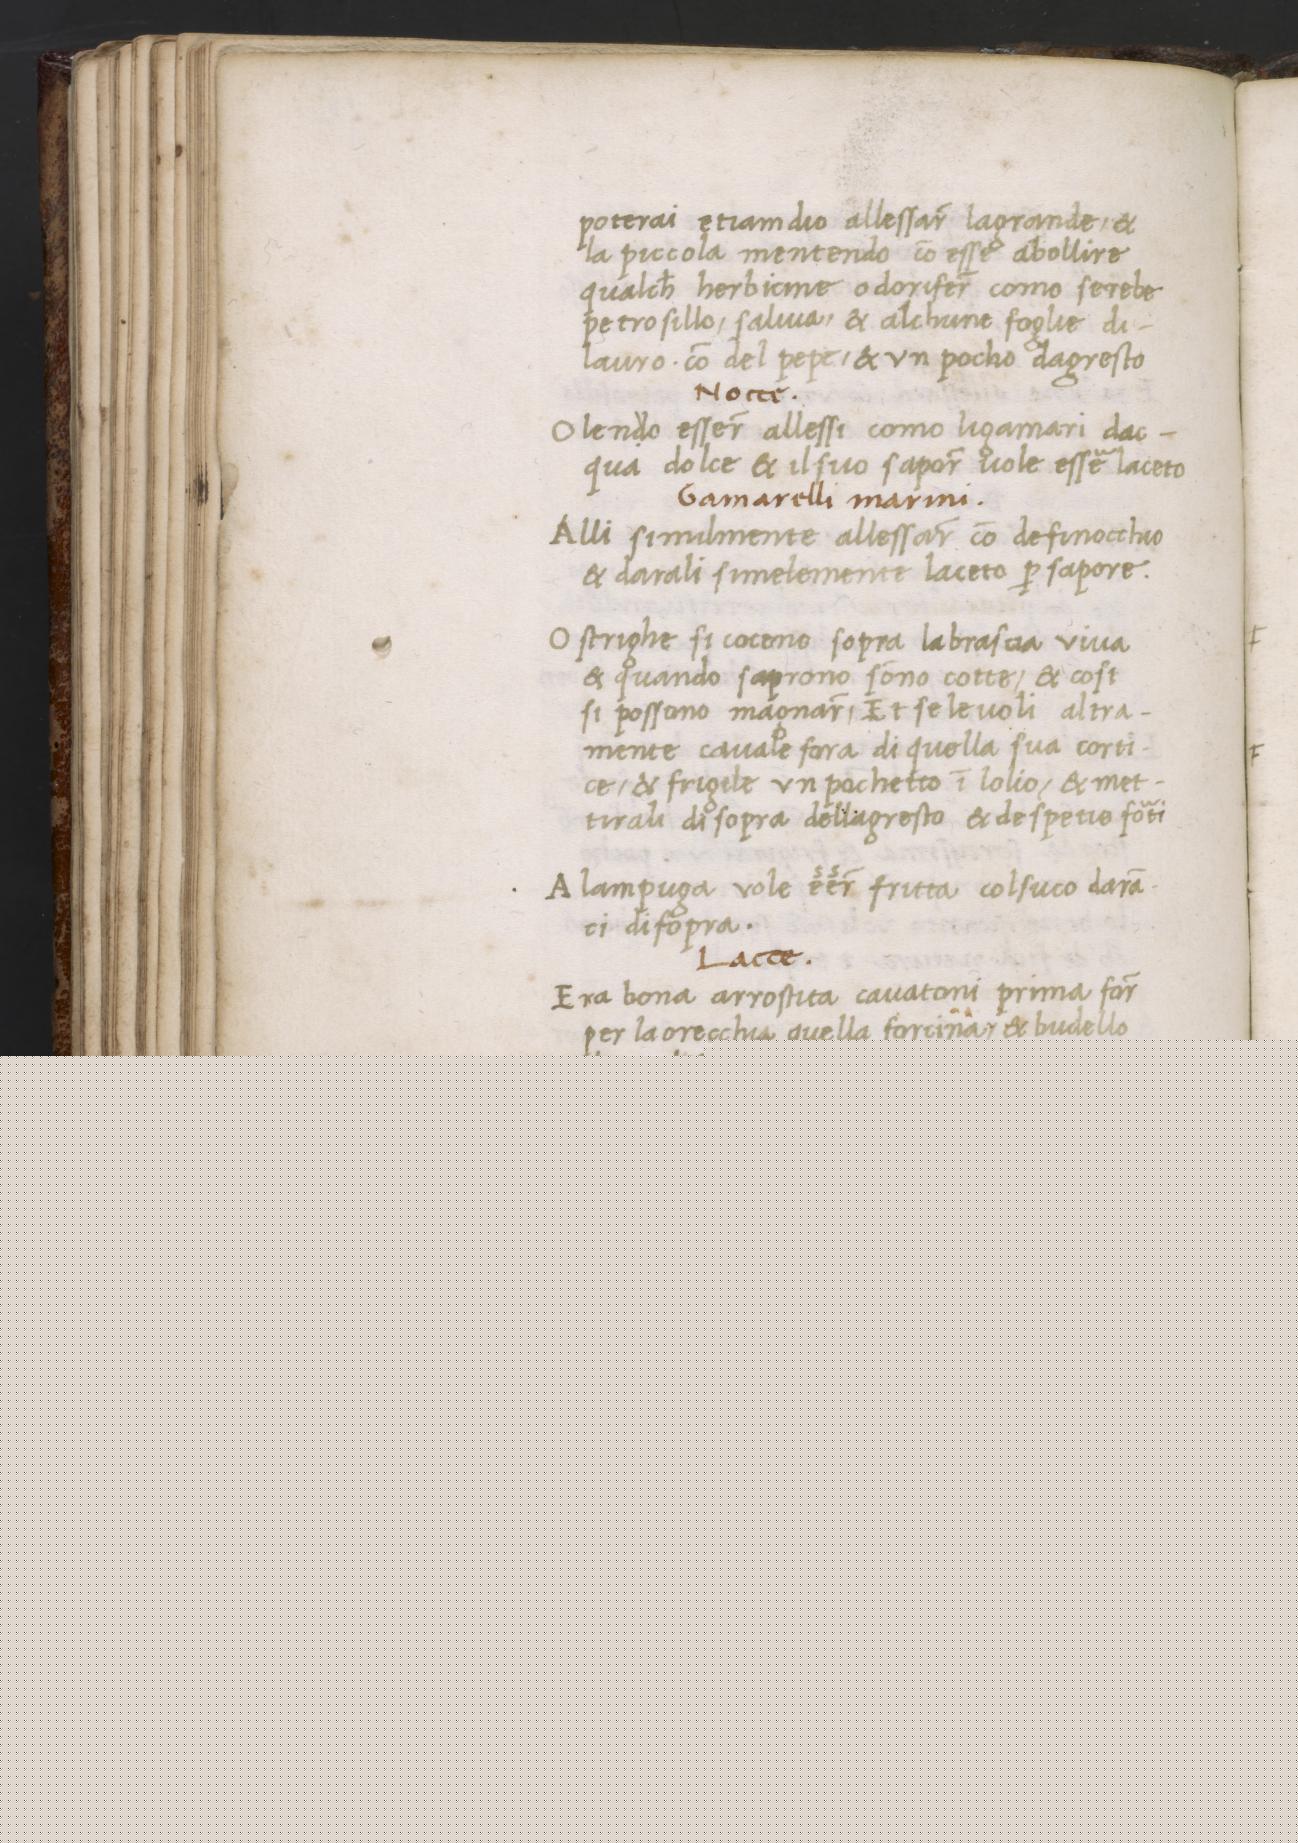 poterai etiamdio allessar̄ lagrande, &
la piccola mentendo cō esse abollire
qualch̄ herbicine odorifer̄ como serebe
petrosillo, saluia, & alchune foglie di -
lauro. cō del pepe, & vn pocho dagresto
Nocce.
Olendo esser̄ allessi como ligamari dac -
qua dolce & ilsuo sapor̄ uole esser̄ laceto
Gamarelli marini.
Alli similmente allessar̄ cō definocchio
& darali simelemente laceto ꝑ sapore.
Ostrighe si coceno sopra labrascia viua
& quando saprono sono cotte, & cosi
si possono magnar̄, Et seleuoli altra -
mente cauale fora di quella sua corti -
ce, & frigile vn pochetto ī lolio, & met -
tirali di sopra dellagresto & despetie forti
Alampuga vole eer̄ fritta colsuco darā -
ci disopra.
Lacce.
Era bona arrostita cauatoni prima for̄
per laorecchia quella forcina, & budello